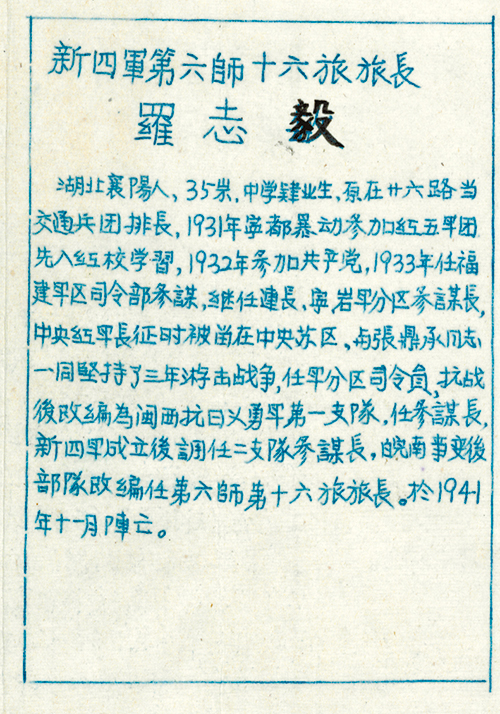 新四軍第六師十六旅旅長
羅志毅
湖北襄陽人，35岁，中学肄业生，原在廿六路当
交通兵团排長，1931年宁都暴动参加紅五军团
先入紅校学習，1932年参加共产党，1933年任福
建军区司令部参謀，继任連長、宁、岩军分区参謀長，
中央紅军長征时被留在中央苏区，与張鼎承同志
一同堅持了三年游击战争，任军分区司令員，抗战
後改編為闽西抗日义勇军第一支隊，任参謀長，
新四军成立後調任二支隊参謀長，皖南事变後
部隊改編任第六師第十六旅旅長。於1941
年十一月陣亡。